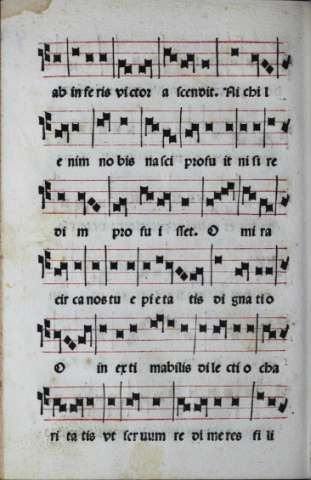 ab in fe ris victor a scendit. Ni chi l
e nim no bis na sci profu it ni si re
di m pro fu i sset. O mi ra
cir ca nos tu e pi e ta tis di gna ti o
O in exti mabilis di le cti o cha
ri ta tis vt seruum re di me res fi li